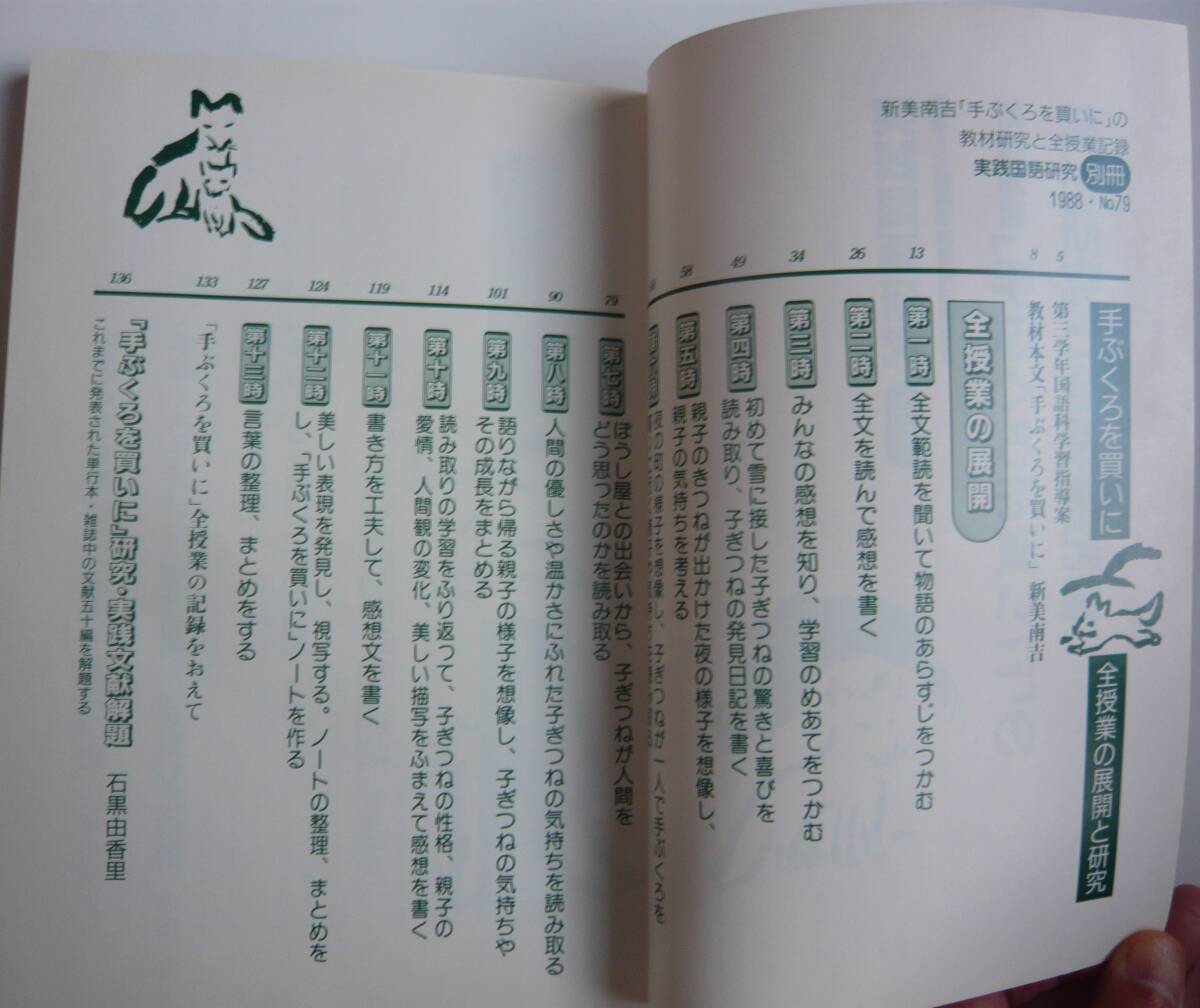 新美南吉「手ぶくろを買いに」の
教材研究と全授業記録
実践国語研究 別冊
1988・No.79
手ぶくろを買いに
全授業の展開と研究
5
第三学年国語科学習指導案
8
教材本文「手ぶくろを買いに」 新美南吉
全授業の展開
13
第一時
全文範読を聞いて物語のあらすじをつかむ
26
第二時
全文を読んで感想を書く
34
第三時
みんなの感想を知り、学習のめあてをつかむ
49
第四時
初めて雪に接した子ぎつねの驚きと喜びを
読み取り、子ぎつねの発見日記を書く
58
第五時
親子のきつねが出かけた夜の様子を想像し、
親子の気持ちを考える
夜の町の様子を想像し、子ぎつねが一人で手ぶくろを
79
第七時
ぼうし屋との出会いから、子ぎつねが人間を
どう思つたのかを読み取る
90
第八時
人間の優しさや温かさにふれた子ぎつねの気持ちを読み取る
101
第九時
語りながら帰る親子の様子を想像し、子ぎつねの気持ちや
その成長をまとめる
114
第十時
読み取りの学習をふり返つて、子ぎつねの性格、親子の
愛情、人間観の変化、美しい描写をふまえて感想を書く
119
第十一時
書き方を工夫して、感想文を書く
124
第十二時
美しい表現を発見し、視写する。ノートの整理、まとめを
し、「手ぶくろを買いに」ノートを作る
127
第十三時
言葉の整理、まとめをする
133
「手ぶくろを買いに」全授業の記録をおえて
136
「手ぶくろを買いに」研究・実践文献解題 石黒由香里
これまでに発表された単行本・雑誌中の文献五十編を解題する